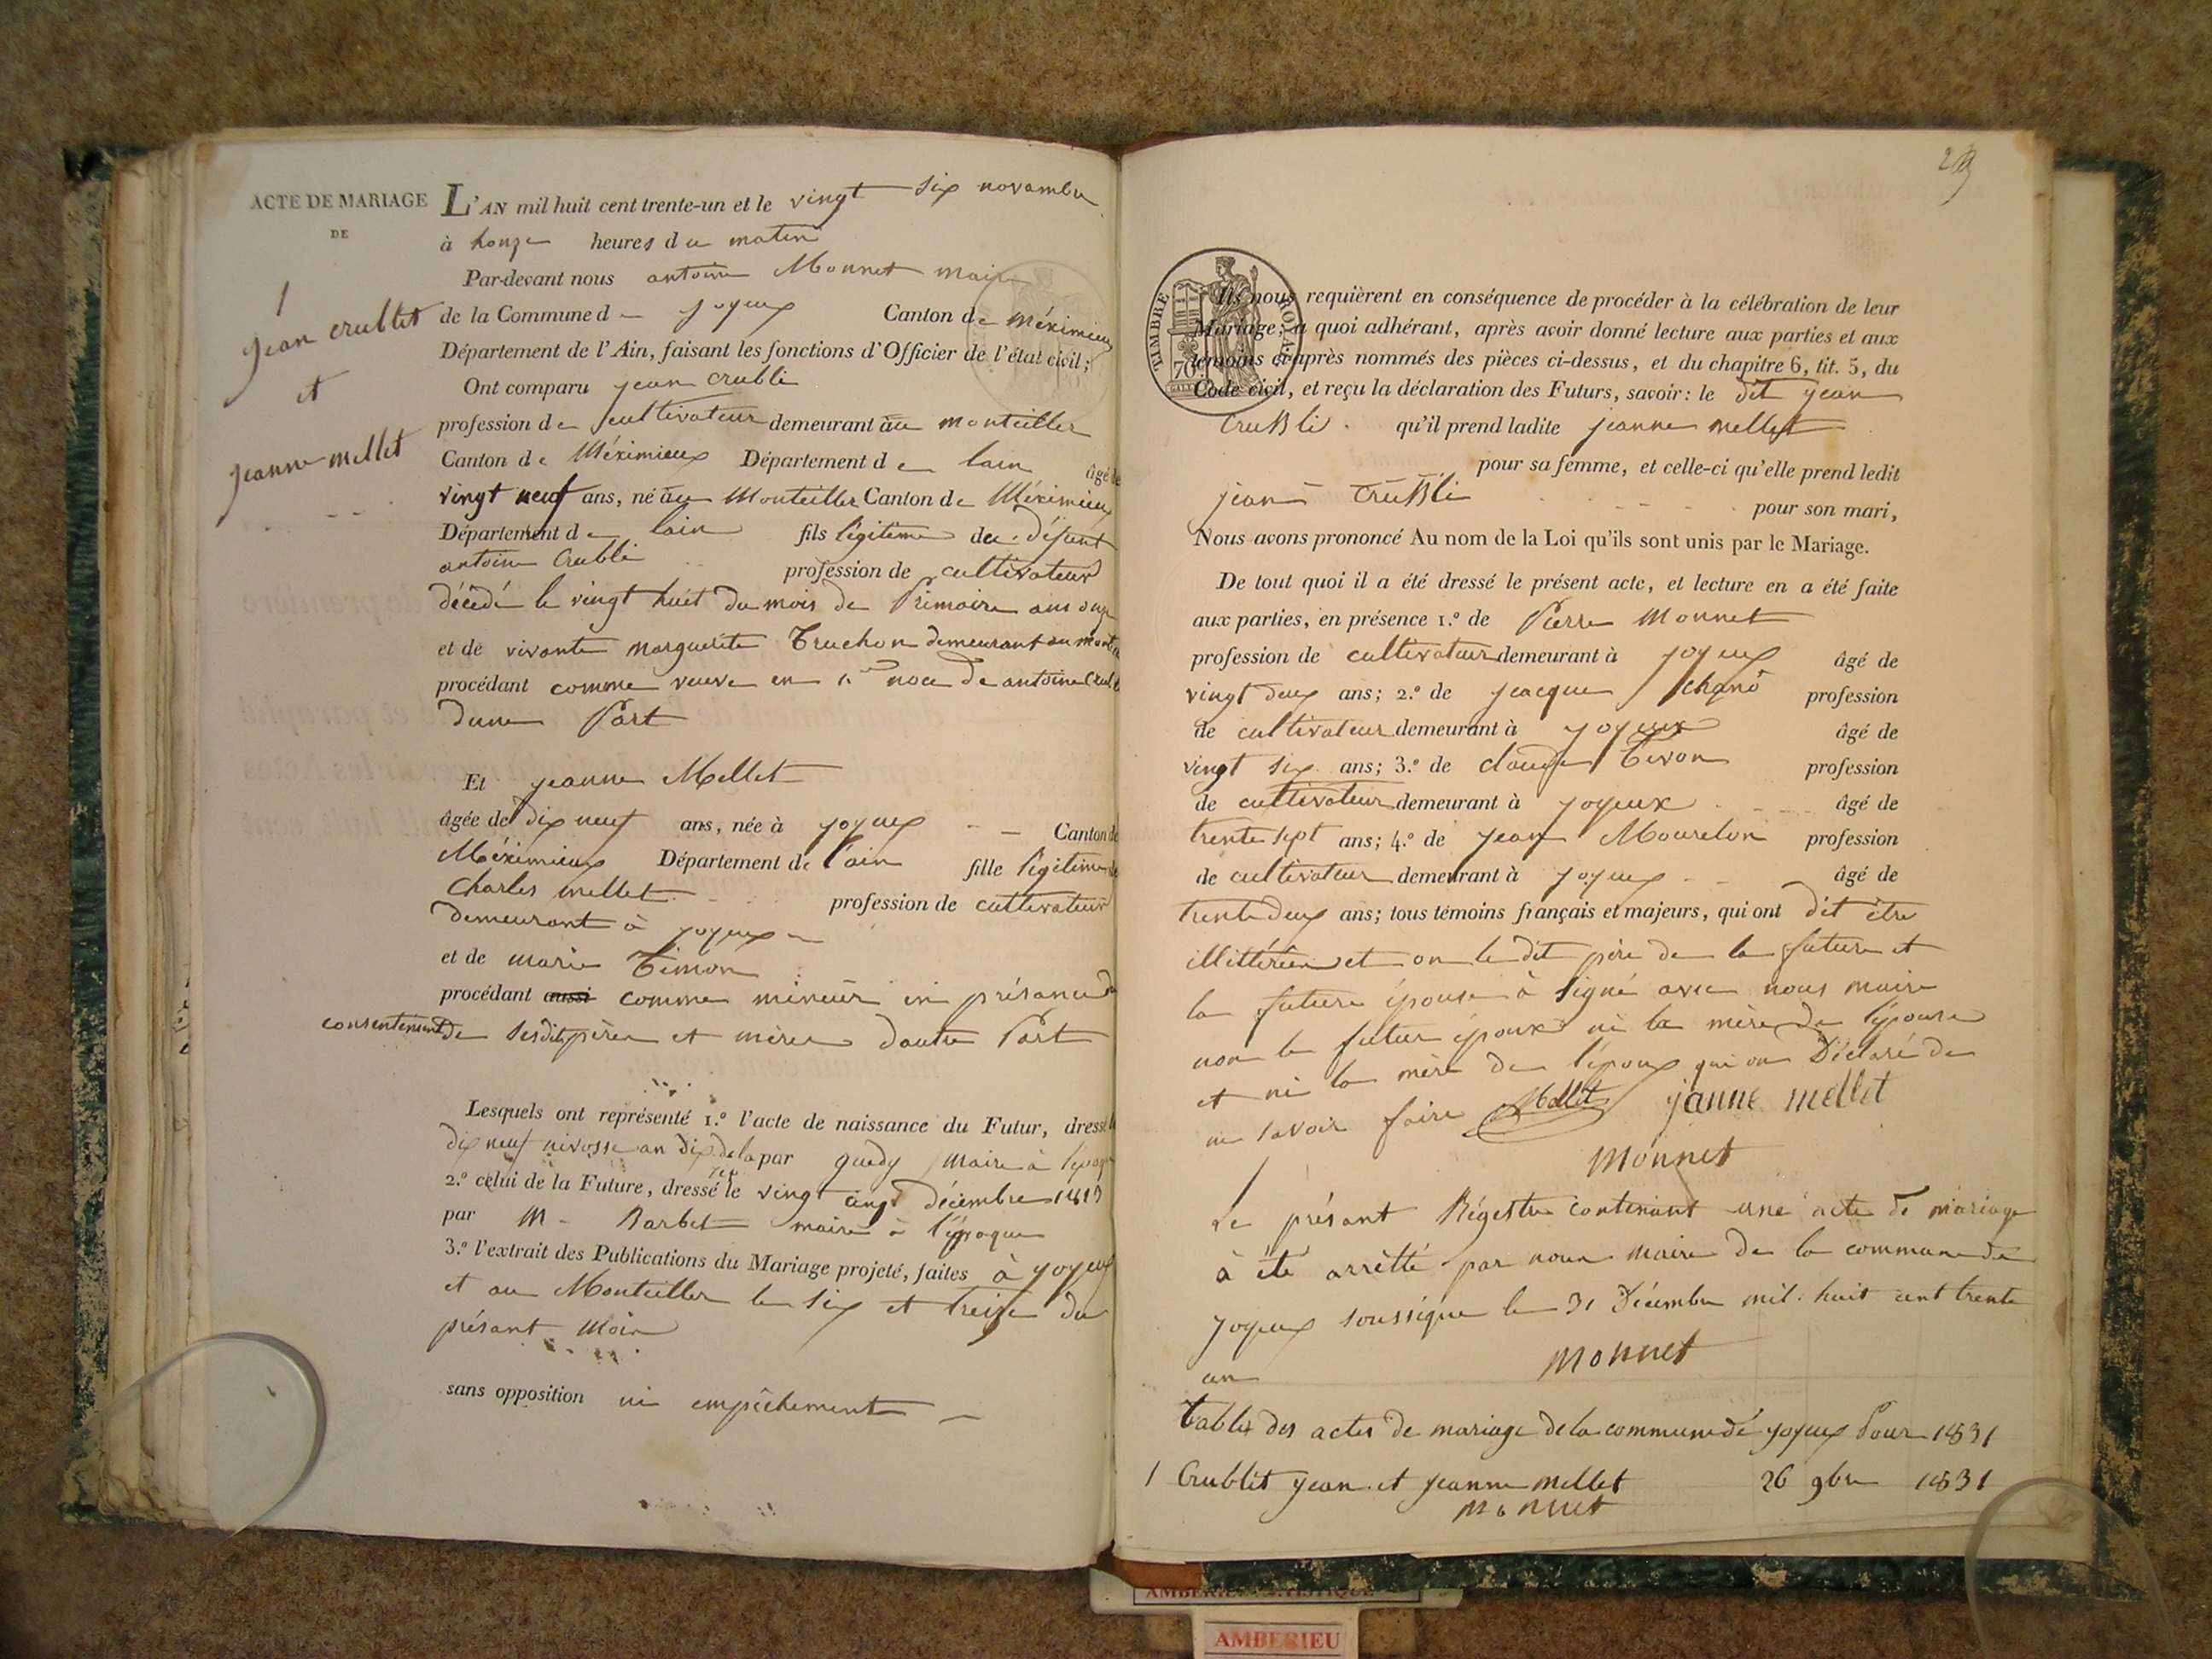 ACTE DE MARIAGE
DE
1
jean crublet
et
jeanne mellet
L'AN mil huit cent trente-un et le vingt six novambre
à honze heures du matin
Par-devant nous antoine Monnet maire
de la Commune de joyeux Canton de Méximieux
Département de l'Ain, faisant les fonctions d'Officier de l'état civil;
Ont comparu jean Crubli
profession de cultivateur demeurant au monteiller
Canton de Méximieux Département de lain âgé de
vingt neuf ans, né au Monteiller Canton de Méximieux
Département de lain fils légitime de défunt
antoine Crubli profession de cultivateur
décédé le vingt huit du mois de frimaire ans onze
et de vivante marguerite Truchon demeurant au
procédant comme veuve en noce de antoine
dune Part
Et jeanne Mellet
âgée de dix neuf ans, née à joyeux Canton de
Méximieux Département de l'ain fille légitime de
Charles mellet profession de cultivateur
demeurant à joyeux
et de marie Timon
procédant aussi comme mineur en présance du
consentement de sesdits père et mère dautre Part
Lesquels ont représenté 1.º l'acte de naissance du Futur, dressé le
dix neuf nivosse an dix par maire à l'époque
2.º celui de la Future, dressé le vingt cinq décembre
par M Barbet maire à l'époque
3.º l'extrait des Publications du Mariage projeté, faites à joyeux
et au Monteiller le six et treize du
présant moi
sans opposition ni empêchement
Ils nous requièrent en conséquence de procéder à la célébration de leur
Mariage; a quoi adhérant, après avoir donné lecture aux parties et aux
témoins ci-après nommés des pièces ci-dessus, et du chapitre 6, tit. 5, du
Code civil, et reçu la déclaration des Futurs, savoir: le dit jean
Crubli qu'il prend ladite jeanne mellet
pour sa femme, et celle-ci qu'elle prend ledit
jean Crubli pour son mari,
Nous avons prononcé Au nom de la Loi qu'ils sont unis par le Mariage.
De tout quoi il a été dressé le présent acte, et lecture en a été faite
aux parties, en présence 1.º de Pierre Monnet
profession de cultivateur demeurant à joyeux âgé de
vingt deux ans; 2.º de jacque profession
de cultivateur demeurant à joyeux âgé de
vingt six ans; 3.º de claude profession
de cultivateur demeurant à joyeux âgé de
trente sept ans; 4.º de jean Mourelon profession
de cultivateur demeurant à joyeux âgé de
trente deux ans; tous témoins français et majeurs, qui ont dit être
et on le dit père de la future et
la future épouse à signé avec nous maire
non le futur époux ni la mère de l'épouse
et ni la mère de l'époux qui on Déclaré de
ne savoir faire Mellet janne mellet
monnet
Le présant Régestre contenant une acte de mariage
à été arrêtté par nous maire de la commune de
joyeux soussigne le 31 Décembre mil huit cent trente
un
monnet
Table des actes de mariage de la commune de joyeux Pour 1831
1 Crublet jean et jeanne mellet 26 9bre 1831
monnet
TIMBRE ROYAL
70
AMBERIEU